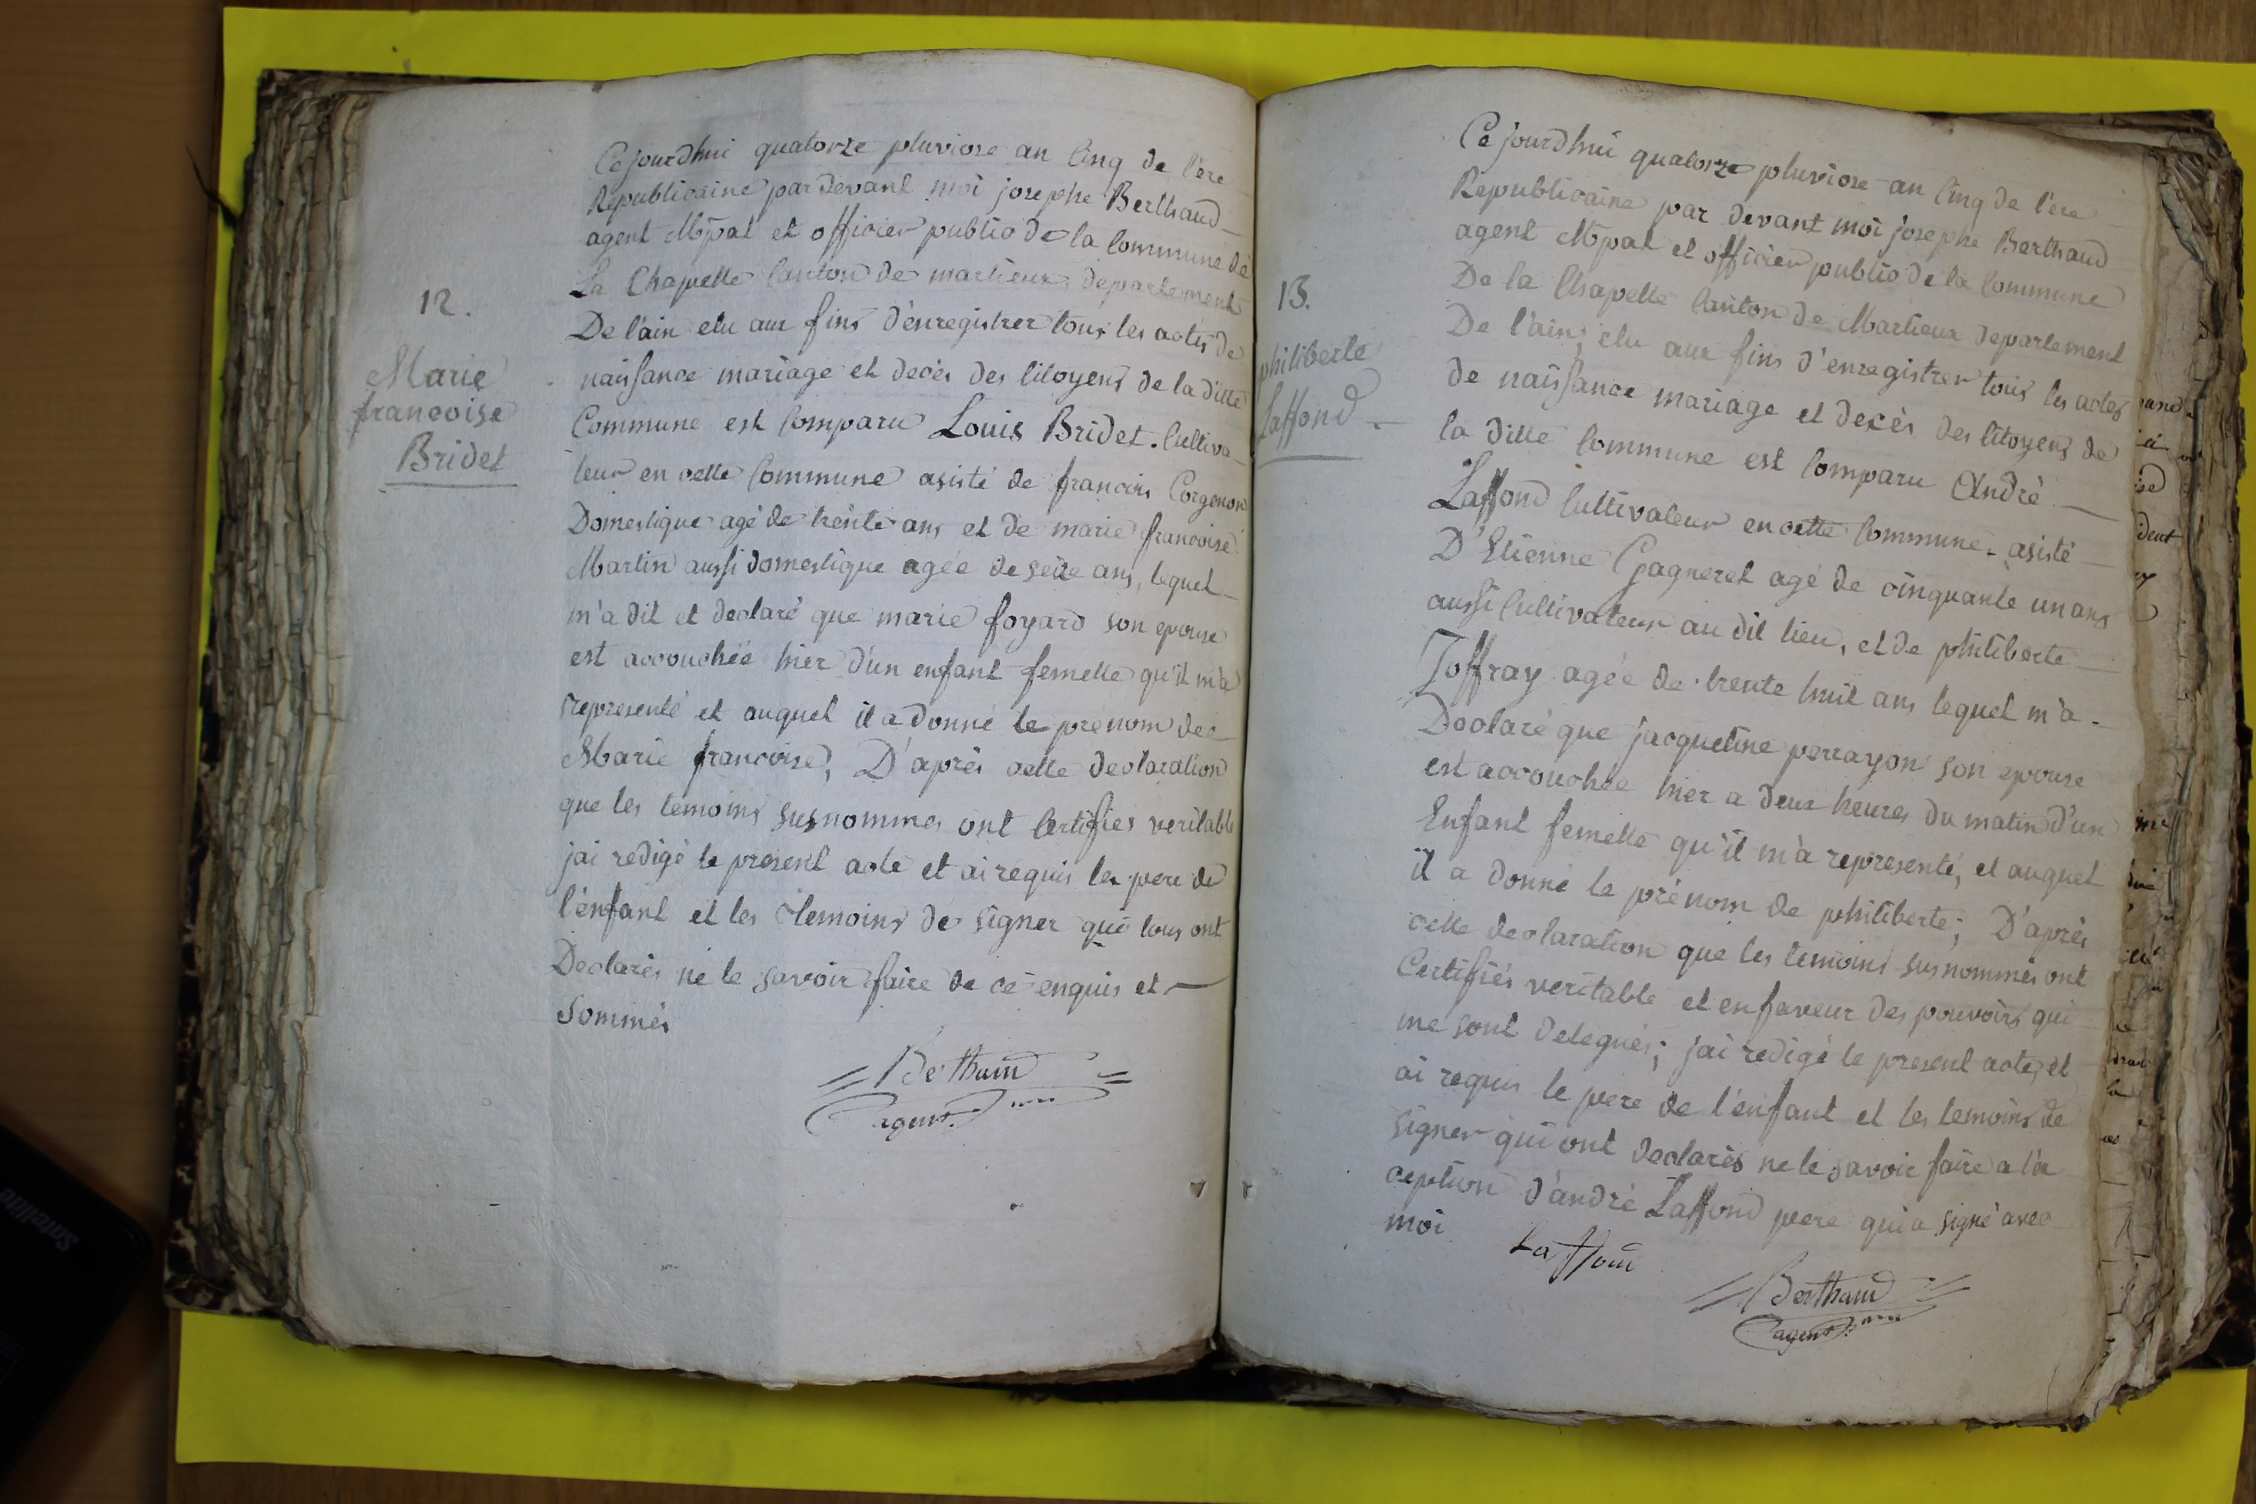 12.
Marie
francoise
Bridet
Cejourdhui quatorze pluviose an Cinq de l'ère
Republicaine pardevant moi josephe Berthaud
agent Mpal et officier public de la Commune de
La Chapelle Canton de marlieux departement
De l'ain elu aux fins d'enregistrer tous les actes de
naissance mariage et decès des Citoyens de la ditte
Commune est Comparu Louis Bridet. Cultiva-
teur en cette Commune asisté de francois Corgenon
Domestique agé de trente ans et de marie francoise
Martin aussi domestique agée de seize ans, lequel
m'a dit et declaré que marie foyard son epouse
est accouchée hier d'un enfant femelle qu'il m'a
representé et auquel il a donné le prenom de
Marie francoise, D'après cette declaration
que les temoins susnommes ont Certifies veritable
jai redigé le present acte et ai requis le pere de
l'enfant et les temoins de signer qui tous ont
Declarés ne le savoir faire de ce enquis et
Sommés
Berthaud
agent
13.
philiberte
Laffond
Ce jourdhui quatorze pluviose an Cinq de l'ère
Republicaine par devant moi josephe Berthaud
agent Mpal et officier public de la Commune
De la Chapelle Canton de Marlieux departement
De l'ain, elu aux fins d'enregistrer tous les actes
de naissance mariage et decès des Citoyens de
la ditte Commune est Comparu André
Laffond Cultivateur en cette Commune. asisté
D'Etienne Gagneret agé de cinquante un ans
aussi Cultivateur au dit lieu, et de philiberte
Joffray agée de trente huit ans lequel m'a
Declaré que jacqueline perrayon son epouse
est accouchée hier a deux heures du matin d'un
Enfant femelle qu'il m'a representé, et auquel
il a donné le prénom de philiberte; D'après
cette declaration que les temoins susnommés ont
Certifiés veritable et en faveur des pouvoirs qui
me sont delegués; jai redigé le present acte, et
ai requis le pere de l'enfant et les temoins de
signer qui ont declarés ne le savoir faire a l'ex
ception d'andré Laffond pere qui a signé avec
moi
Laffond
Berthaud
agent